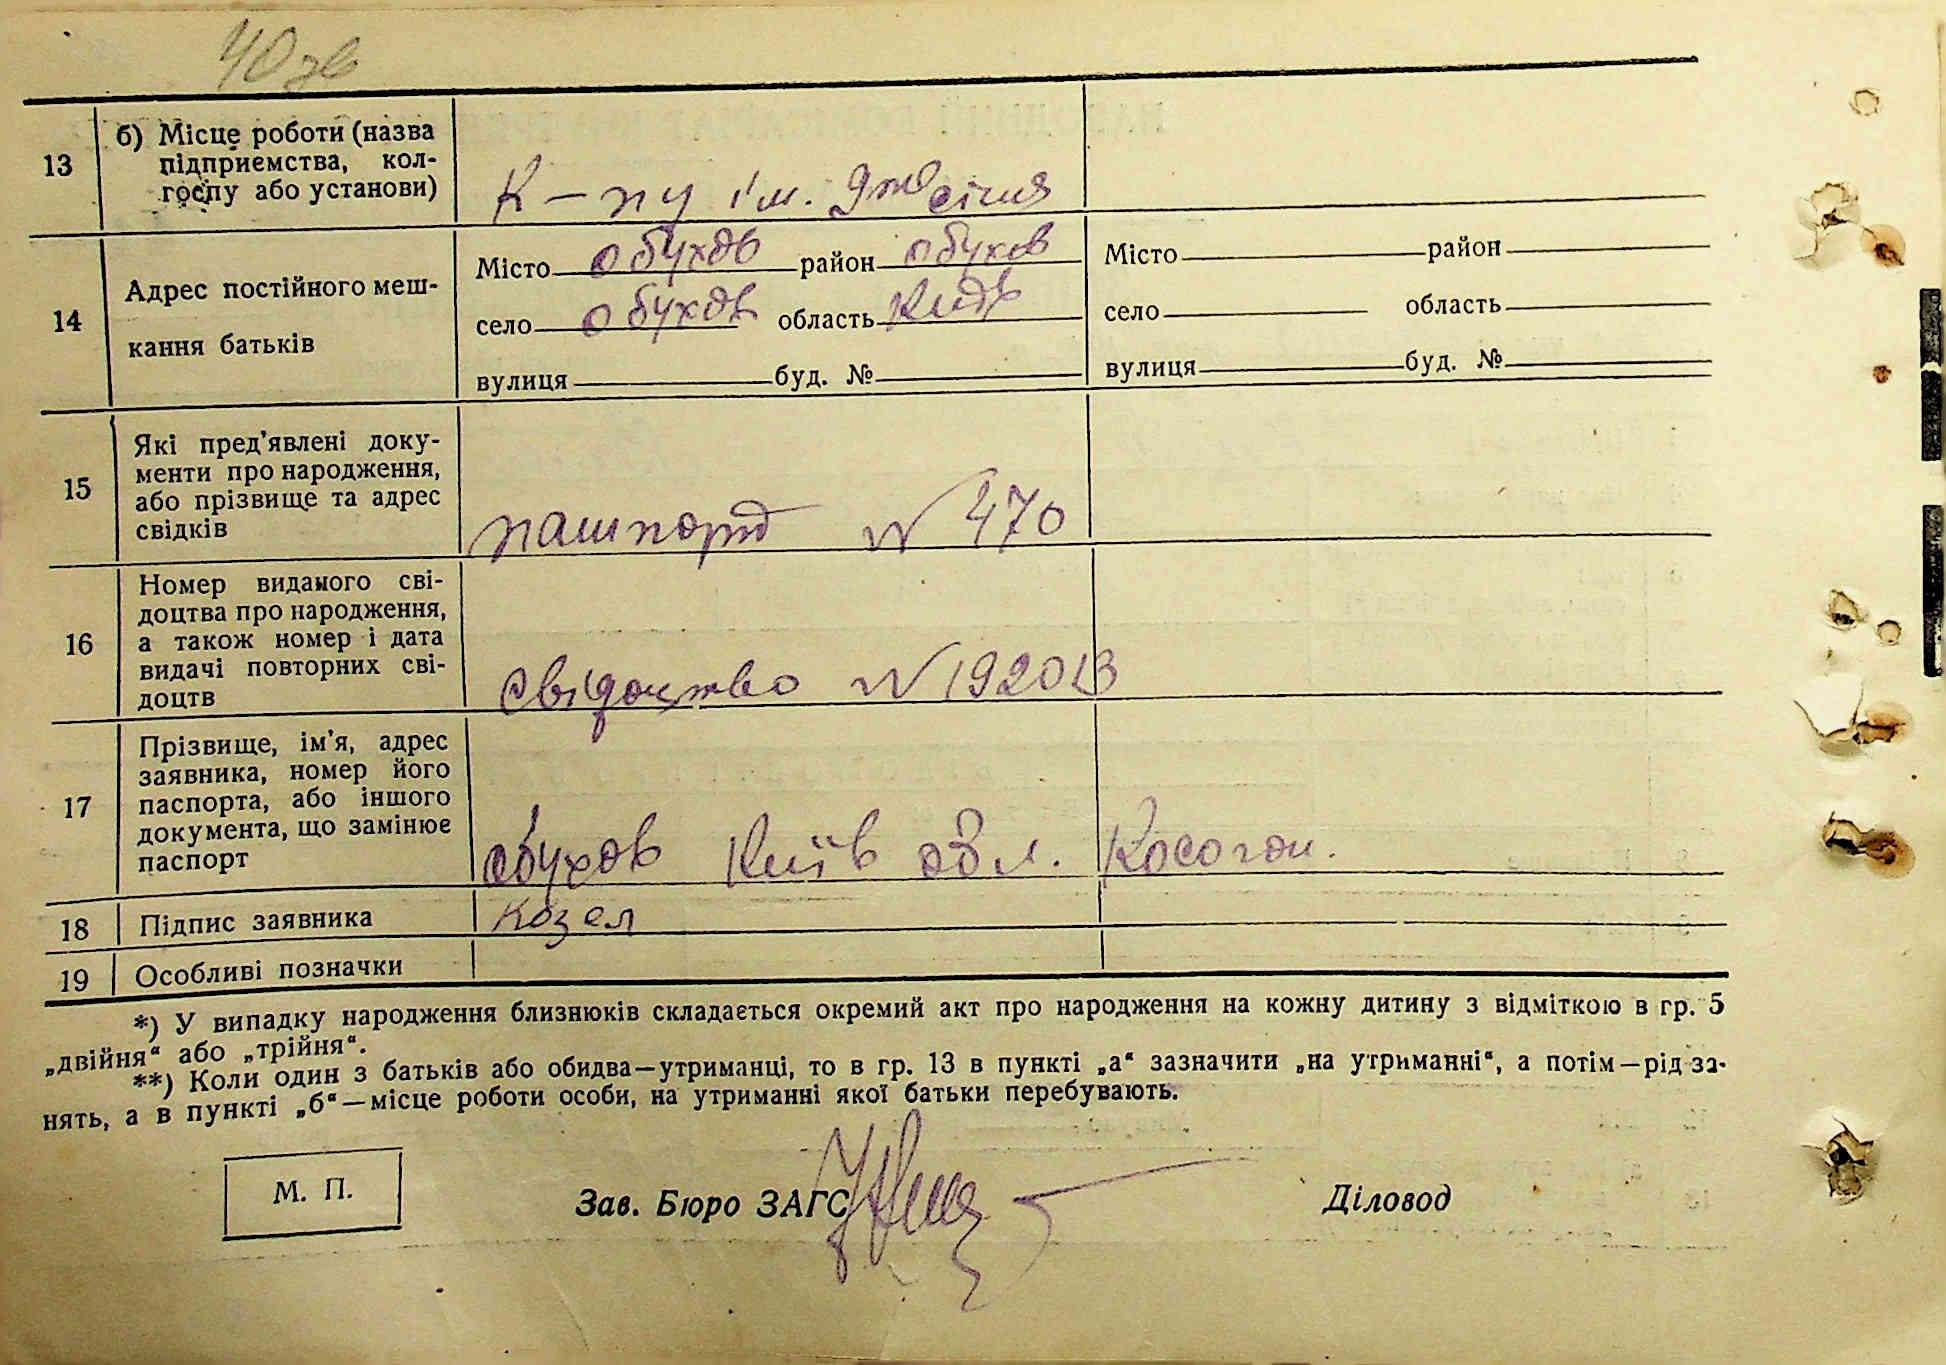 40 зв
13
б) Місце роботи (назва
підприємства, кол-
госпу або установи)
К-пу ім. 9го січня
14
Адрес постійного меш-
кання батьків
Місто Обухов район Обухов
село Обухов область Київ
вулиця буд. №
Місто район
село область
вулиця буд. №
15
Які пред'явлені доку-
менти про народження,
або прізвище та адрес
свідків
пашпорт № 470
16
Номер виданого сві-
доцтва про народження,
а також номер і дата
видачі повторних сві-
доцтв
Свідоцтво № 192013
17
Прізвище, ім'я, адрес
заявника, номер його
паспорта, або іншого
документа, що замінює
паспорт
Обухов Київ обл.
18 Підпис заявника
Козел
19 Особливі позначки
*) У випадку народження близнюків складається окремий акт про народження на кожну дитину з відміткою в гр. 5
„двійня“ або „трійня“.
**) Коли один з батьків або обидва—утриманці, то в гр. 13 в пункті „а“ зазначити „на утриманні“, а потім—рід за-
нять, а в пункті „б“—місце роботи особи, на утриманні якої батьки перебувають.
М. П.
Зав. Бюро ЗАГС
Діловод